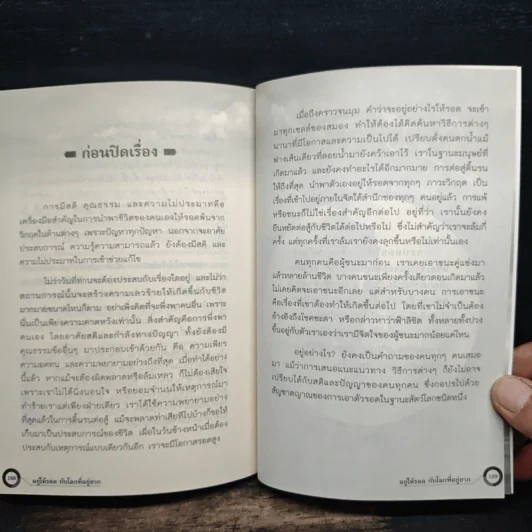 ก่อนปิดเรื่อง
การมีสติ คุณธรรม และความไม่ประมาทคือ
เครื่องมือสำคัญในการนำพาชีวิตของตนเองให้รอดพ้นจาก
วิกฤตในด้านต่างๆ เพราะปัญหาทุกปัญหา นอกจากจะอาศัย
ประสบการณ์ ความรู้ความสามารถแล้ว ยังต้องมีสติ และ
ความไม่ประมาทในการเข้าช่วยแก้ไข
ไม่ว่าวันที่ท่านจะต้องประสบกับเรื่องใดอยู่ และไม่ว่า
สถานการณ์นั้นจะสร้างความเลวร้ายให้เกิดขึ้นกับชีวิต
มากมายขนาดไหนก็ตาม อย่าเพิ่งคิดที่จะพึ่งพาคนอื่น เพราะ
นั่นเป็นเพียงความคาดหวังเท่านั้น สิ่งสำคัญคือการพึ่งพา
ตนเอง โดยอาศัยสติและกำลังทางปัญญา ทั้งยังต้องมี
คุณธรรมข้ออื่นๆ มาประกอบเข้าด้วยกัน คือ ความเพียร
ความอดทน และความพยายามอย่างถึงที่สุด เมื่อทำได้อย่าง
นี้แล้ว หากแม้จะต้องผิดพลาดหรือล้มเหลว ก็ไม่ต้องเสียใจ
เพราะเราไม่ได้นิ่งนอนใจ หรือยอมจำนนให้เหตุการณ์มา
ทำร้ายเราแต่เพียงฝ่ายเดียว เราได้ใช้ความพยายามอย่าง
ที่สุดแล้วในการดิ้นรนต่อสู้ แม้จะพลาดท่าเสียทีไปบ้างก็ขอให้
เก็บมาเป็นประสบการณ์ของชีวิต เผื่อในวันข้างหน้าเมื่อต้อง
ประสบกับเหตุการณ์แบบเดียวกันอีก เราจะมีโอกาสรอดสูง
อยู่ให้รอด กับโลกที่อยู่ยาก
เมื่อถึงคราวจนมุม คำว่าจะอยู่อย่างไรให้รอด จะเข้า
มาทุกเซลล์ของสมอง ทำให้ต้องได้คิดค้นหาวิธีการต่างๆ
นานาที่มีโอกาสและความเป็นไปได้ เปรียบดั่งคนตกน้ำแม้
ฟางเส้นเดียวที่ลอยน้ำมายังคว้าเอาไว้ เราในฐานะมนุษย์ที่
เกิดมาแล้ว และยังคงทำอะไรได้อีกมากมาย การต่อสู้ดิ้นรน
ให้ถึงที่สุด นำพาตัวเองอยู่ให้รอดจากทุกๆ ภาวะวิกฤต เป็น
เรื่องที่เข้าไปอยู่ภายในจิตใต้สำนึกของทุกๆ คนอยู่แล้ว การแพ้
หรือชนะก็ไม่ใช่เรื่องสำคัญอีกต่อไป อยู่ที่ว่า เรานั้นยังคง
ยืนหยัดต่อสู้กับชีวิตได้ต่อไปหรือไม่ ซึ่งไม่สำคัญว่าเราจะล้มกี่
ครั้ง แต่ทุกครั้งที่เราล้มเรายังคงลุกขึ้นหรือไม่เท่านั้นเอง
คนทุกคนคือผู้ชนะมาก่อน เราเคยเอาชนะคู่แข่งมา
แล้วหลายล้านชีวิต บางคนชนะเพียงครั้งเดียวตอนเกิดมาแล้ว
ไม่เคยคิดจะเอาชนะอีกเลย แต่สำหรับบางคน การเอาชนะ
คือเรื่องที่เขาต้องทำให้เกิดขึ้นต่อไป โดยที่เขาไม่จำเป็นต้อง
อ้างอิงถึงโชคชะตา หรือกล่าวหาว่าฟ้าลิขิต ทั้งหลายทั้งปวง
ขึ้นอยู่กับตัวเราเองว่าเรามีจิตใจของผู้ชนะมากน้อยแค่ไหน
อยู่อย่างไร? ยังคงเป็นคำถามของคนทุกๆ คนเสมอ
มา แม้ว่าการเสนอแนะแนวทาง วิธีการต่างๆ ก็ยังไม่อาจ
เปรียบได้กับสติและปัญญาของคนทุกคน ซึ่งกอปรไปด้วย
สัญชาตญาณของการเอาตัวรอดในฐานะสัตว์โลกชนิดหนึ่ง
อยู่ให้รอด กับโลกที่อยู่ยาก